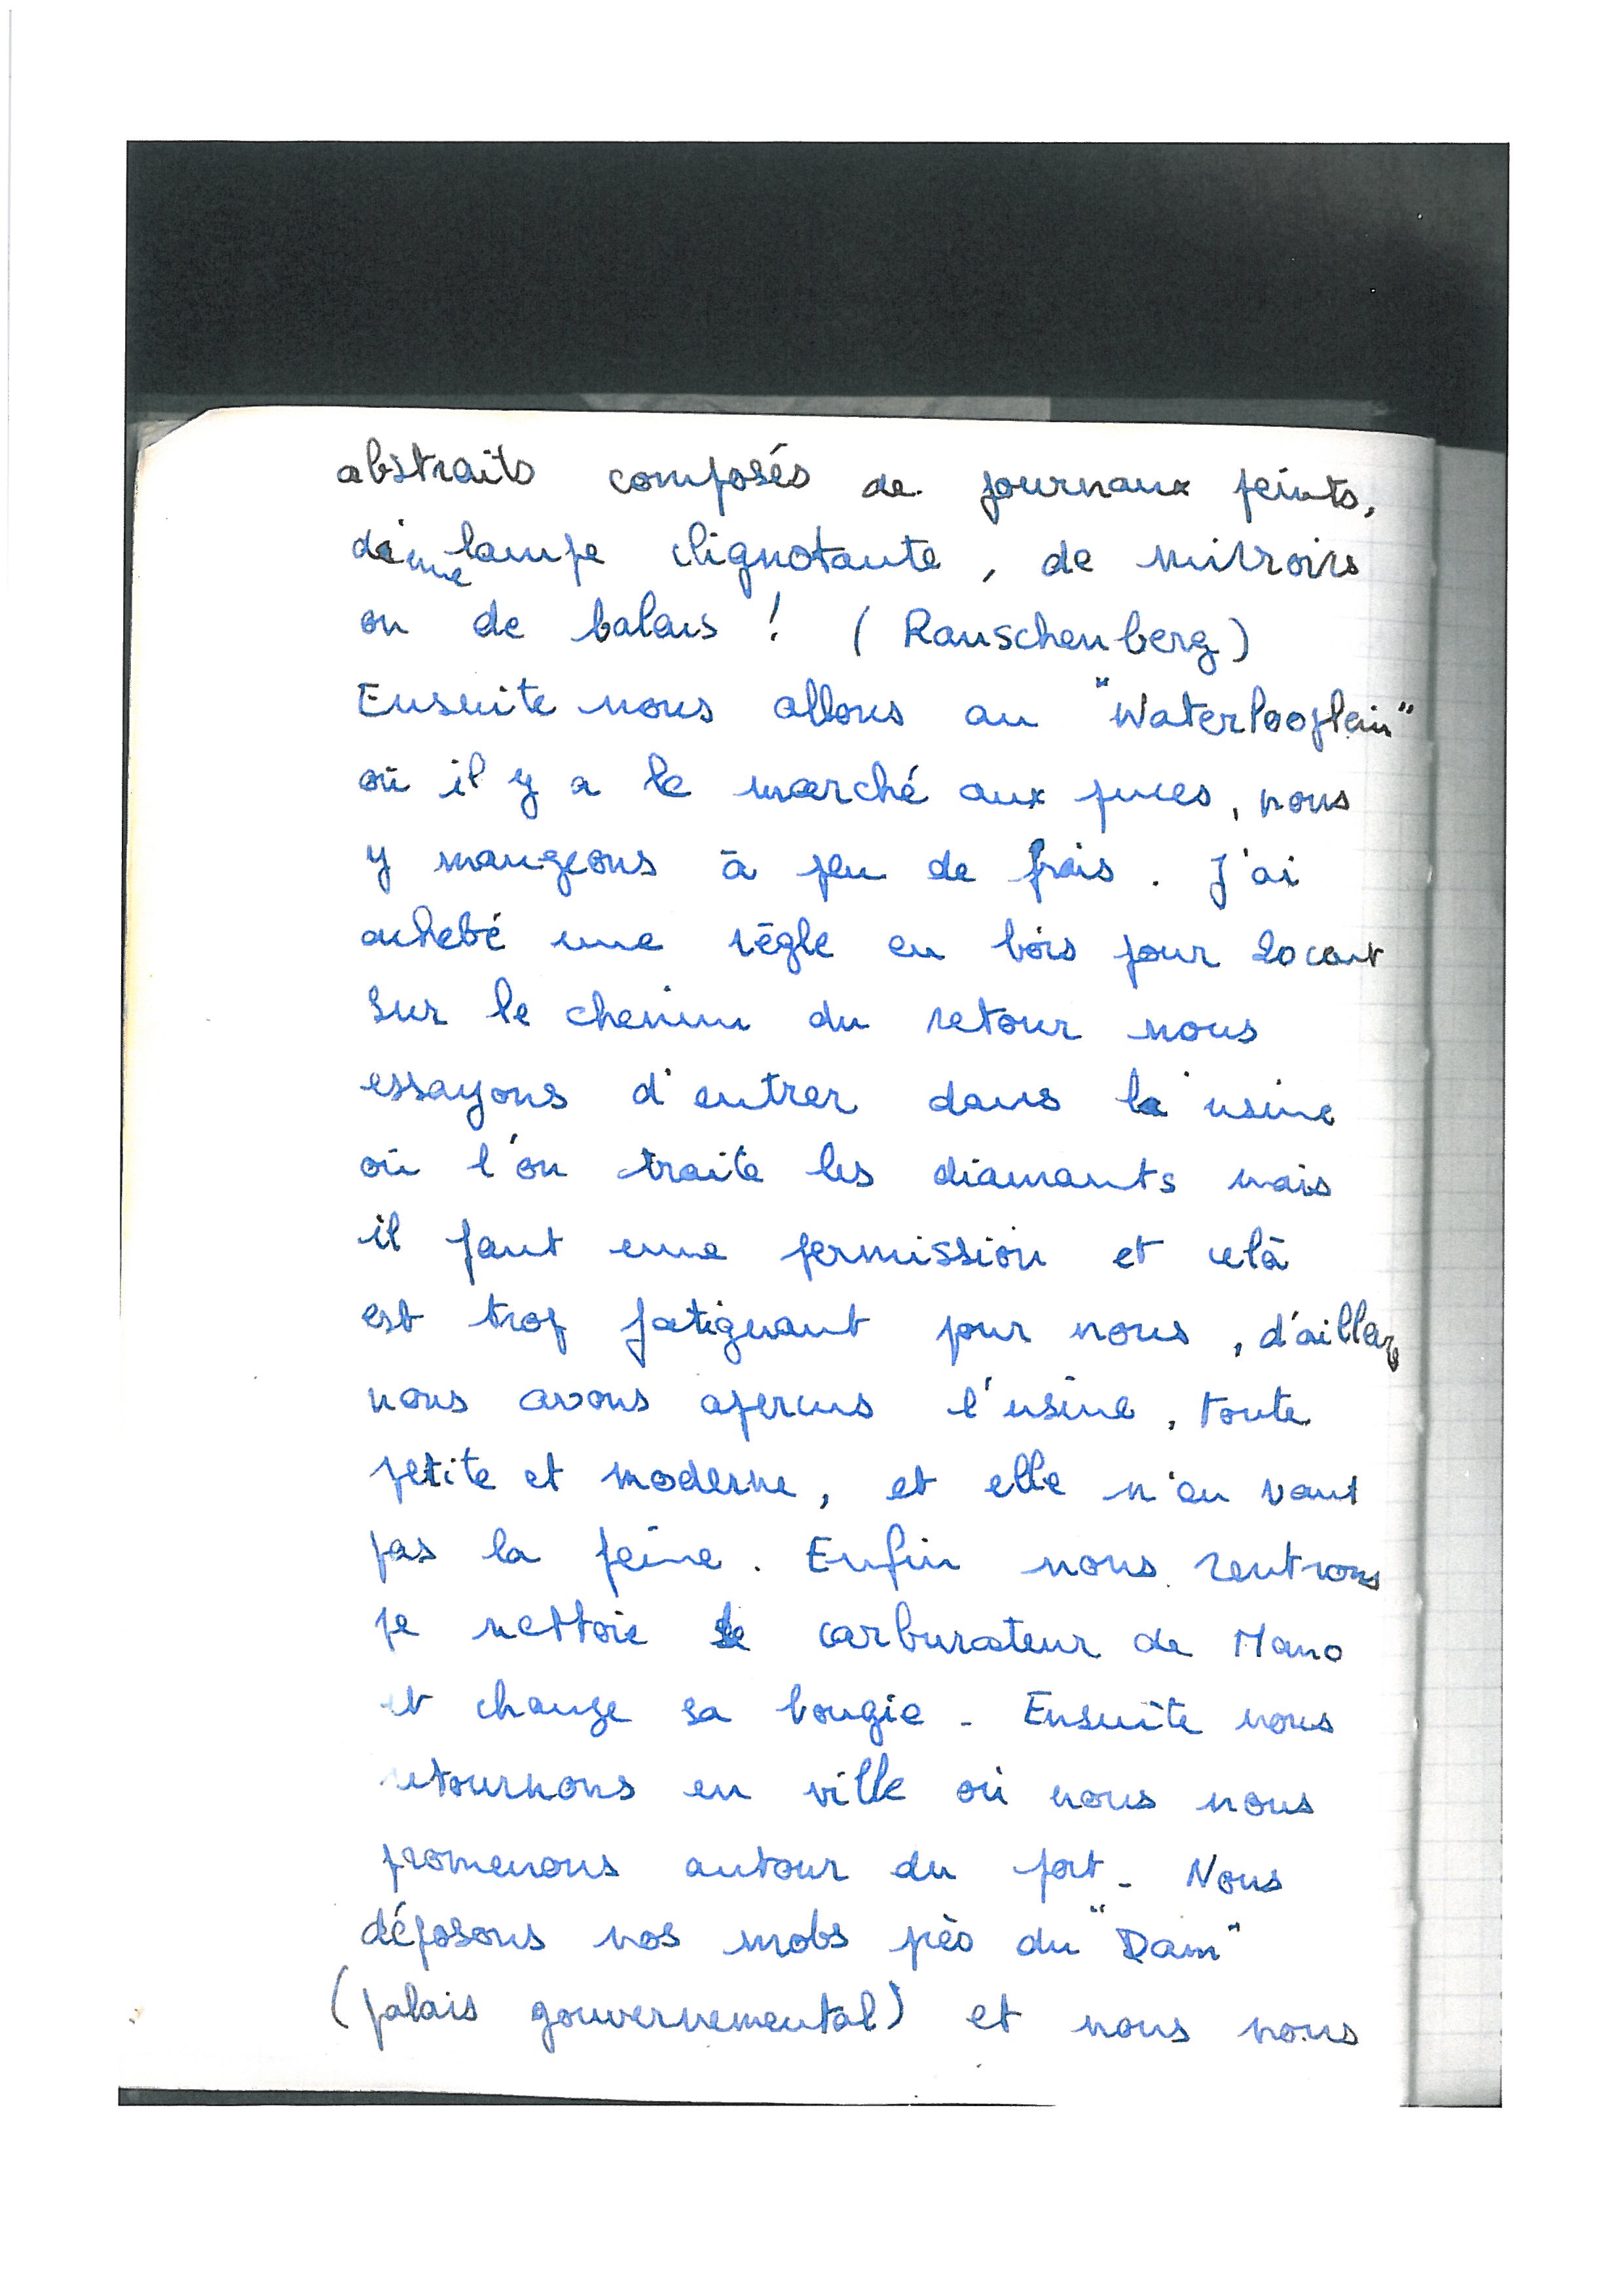 abstraits composés de journaux peints,
d'une lampe clignotante, de miroirs
ou de balais ! (Rauschenberg)
Ensuite nous allons au "Waterlooplein"
où il y a le marché aux puces, nous
y mangeons à peu de frais. J'ai
acheté une règle en bois pour 20 cent
sur le chemin du retour nous
essayons d'entrer dans l'usine
où l'on traite les diamants mais
il faut une permission et celà
est trop fatiguant pour nous, d'ailleurs
nous avons apercus l'usine, toute
petite et moderne, et elle n'en vaut
pas la peine. Enfin nous rentrons
je nettoie le carburateur de Mano
et change sa bougie - Ensuite nous
retournons en ville où nous nous
promenons autour du port - Nous
déposons nos mobs près du "Dam"
(palais gouvernemental) et nous nous